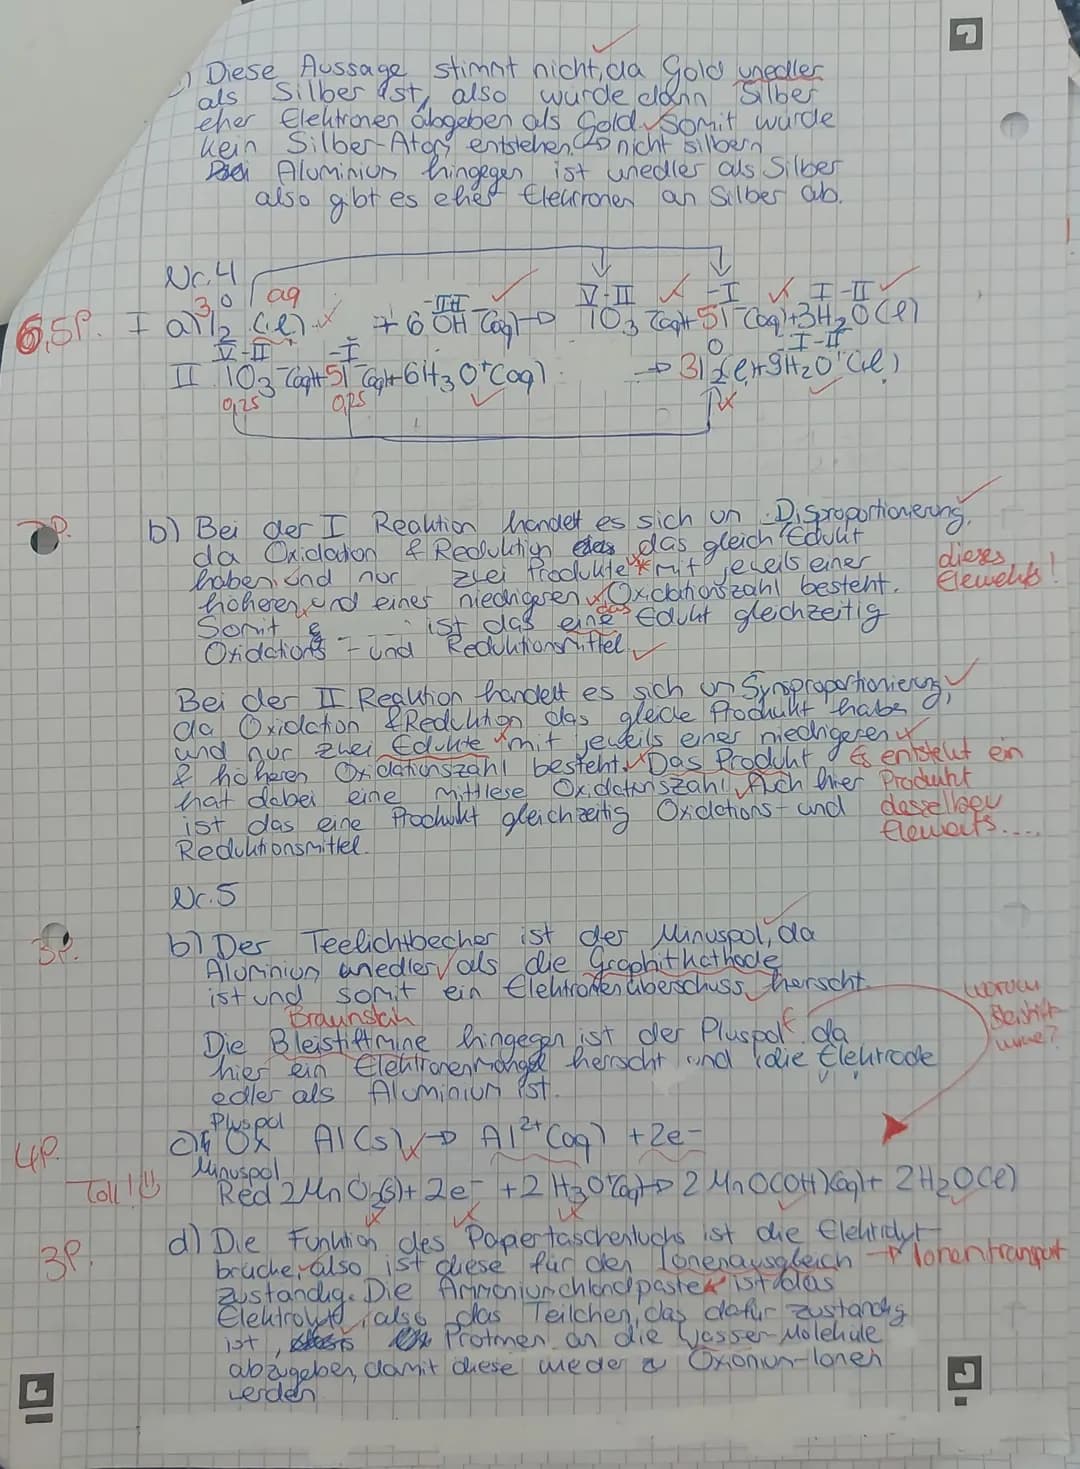 Diese Aussage stimmt nicht, da Gold unedler
als Silber ist, also würde dann Silber
eher Elektronen abgeben als Gold. Somit würde
kein Silber-Atom entstehen. nicht silbern
Aluminium hingegen ist unedler als Silber
also gibt es eher Elektronen an Silber ab.
Nr. 4
3 0 aq V -II -I I -II
6,5P. I a) I2 (l) + 6 OH⁻(aq) → IO3⁻(aq) + 5I⁻(aq) + 3H2O(l)
V -II -I 0 I -II
II IO3⁻(aq) + 5I⁻(aq) + 6H3O⁺(aq) → 3I2(l) + 9H2O(l)
0,25 0,25
7P. b) Bei der I Reaktion handelt es sich um Disproportionierung,
da Oxidation & Reduktion das gleich Edukt
haben und nur zwei Produkte mit jeweils einer dieses
höheren und einer niedrigeren Oxidationszahl besteht. Elements!
Somit ist das eine das Edukt gleichzeitig
Oxidations- und Reduktionsmittel.
Bei der II Reaktion handelt es sich um Synproportionierung,
da Oxidation & Reduktion das gleiche Produkt haben
und nur zwei Edukte mit jeweils einer niedrigeren
& höheren Oxidationszahl besteht. Das Produkt Es entsteht ein
hat dabei eine mittlere Oxidationszahl. Auch hier Produkt
ist das eine Produkt gleichzeitig Oxidations- und desselben
Reduktionsmittel. Elements....
Nr. 5
3P. b) Der Teelichtbecher ist der Minuspol, da
Aluminium unedler als die Graphitkathode
ist und somit ein Elektronenüberschuss herrscht.
Braunstein warum
Die Bleistiftmine hingegen ist der Pluspol da Bleistift-
hier ein Elektronenmangel herrscht und die Elektrode mine?
edler als Aluminium ist.
Pluspol
4P. c) Ox Al(s) → Al²⁺(aq) + 2e⁻
Minuspol
Toll! Red 2MnO2(s) + 2e⁻ + 2H3O⁺(aq) → 2MnO(OH)(aq) + 2H2O(l)
3P. d) Die Funktion des Papertaschentuchs ist die Elektrolyt-
brücke, also ist diese für den Ionenausgleich → Ionentransport
zuständig. Die Ammoniumchloridpaste ist das
Elektrolyt, also das Teilchen, das dafür zuständig
ist, Protonen an die Wasser-Moleküle
abzugeben, damit diese wieder zu Oxonium-Ionen
werden